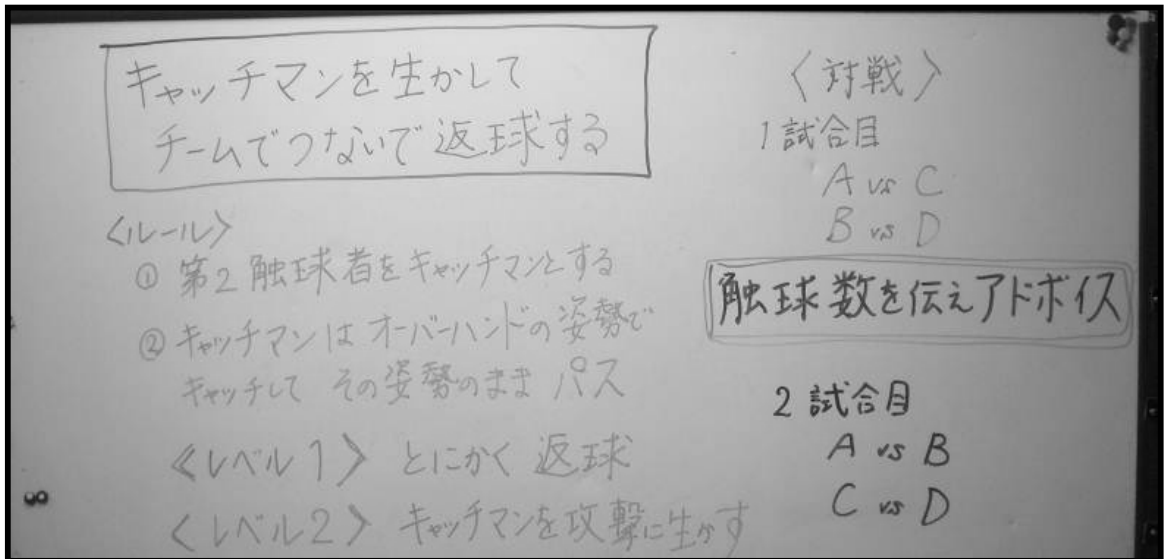 キャッチマンを生かして
チームでつないで返球する
〈ルール〉
① 第2触球者をキャッチマンとする
② キャッチマンはオーバーハンドの姿勢で
キャッチして その姿勢のまま パス
《レベル1》 とにかく 返球
〈レベル2〉 キャッチマンを攻撃に生かす
〈対戦〉
1試合目
A vs C
B vs D
触球数を伝えアドボイス
2試合目
A vs B
C vs D